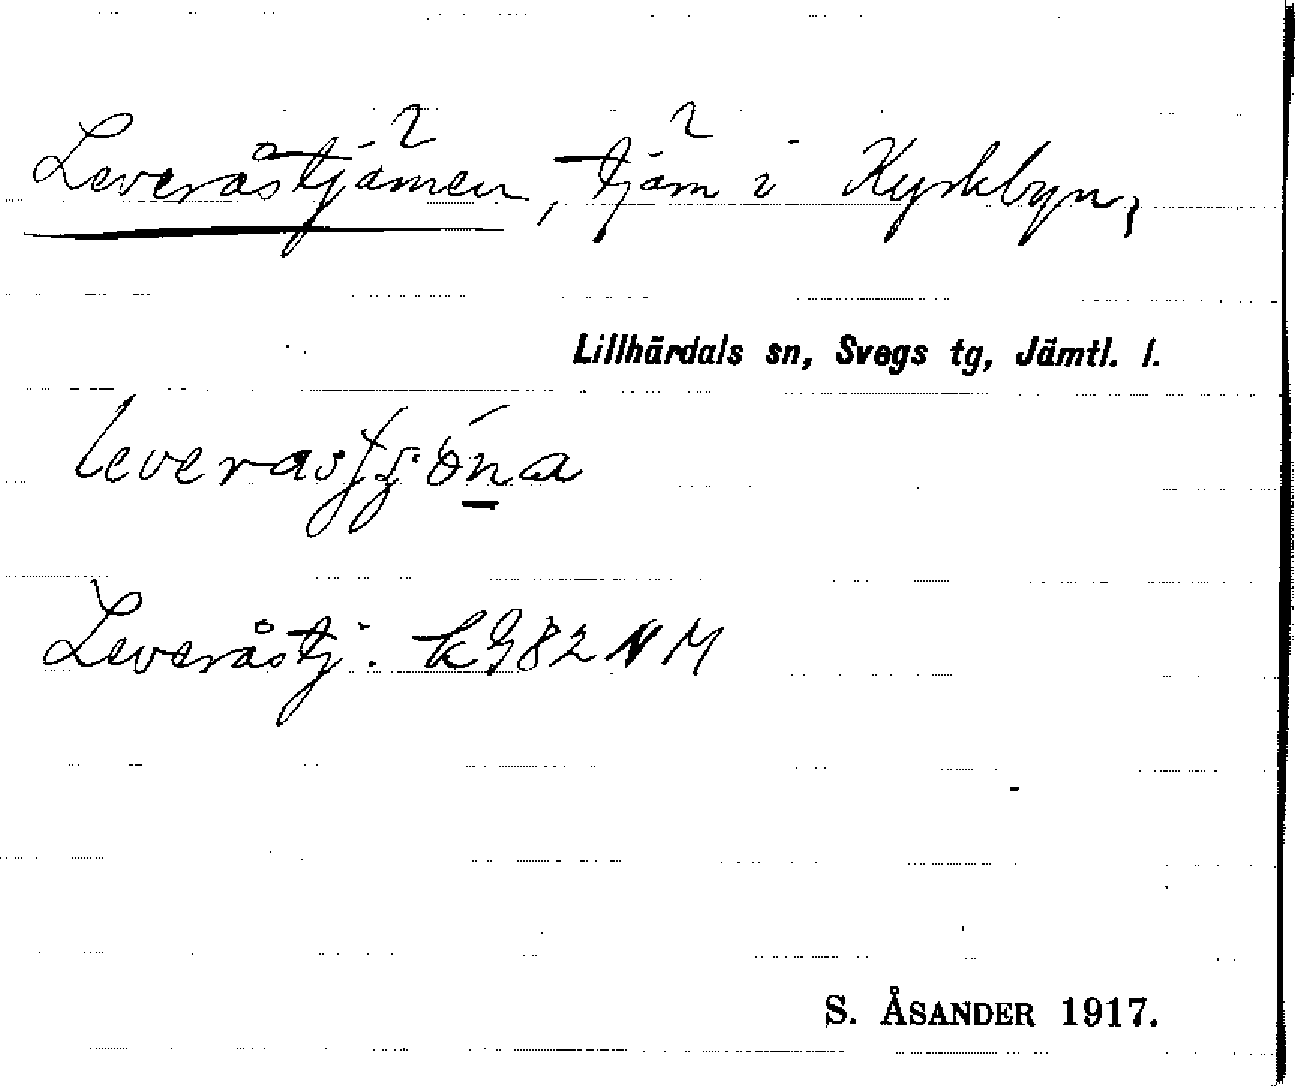 Leveråstjärnen, tjärn i Kyrkbyn,
Lillhärdals sn, Svegs tg, Jämtl. l.
leverastjöna
Leveråstj. kg 82 NM
S. ÅSANDER 1917.